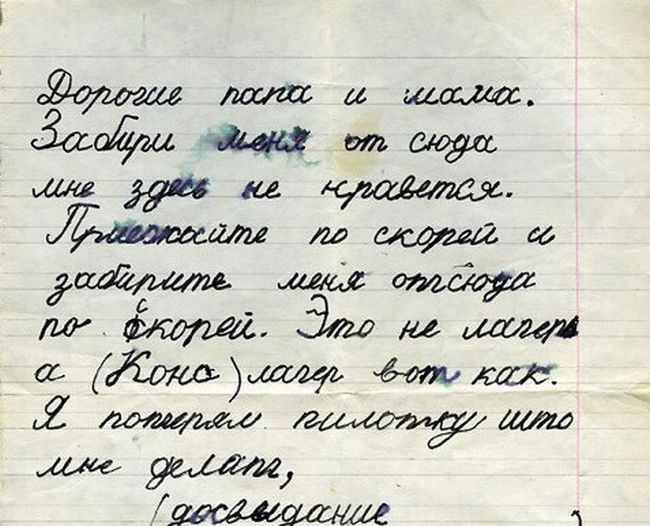 Дорогие папа и мама.
Забири меня от сюда
мне здесь не нравется.
Приезжайте по скорей и
забирите меня отсюда
по скорей. Это не лагерь
а (Конс) лагер вот как.
Я потерял пилотку што
мне делать,
(досвыдание